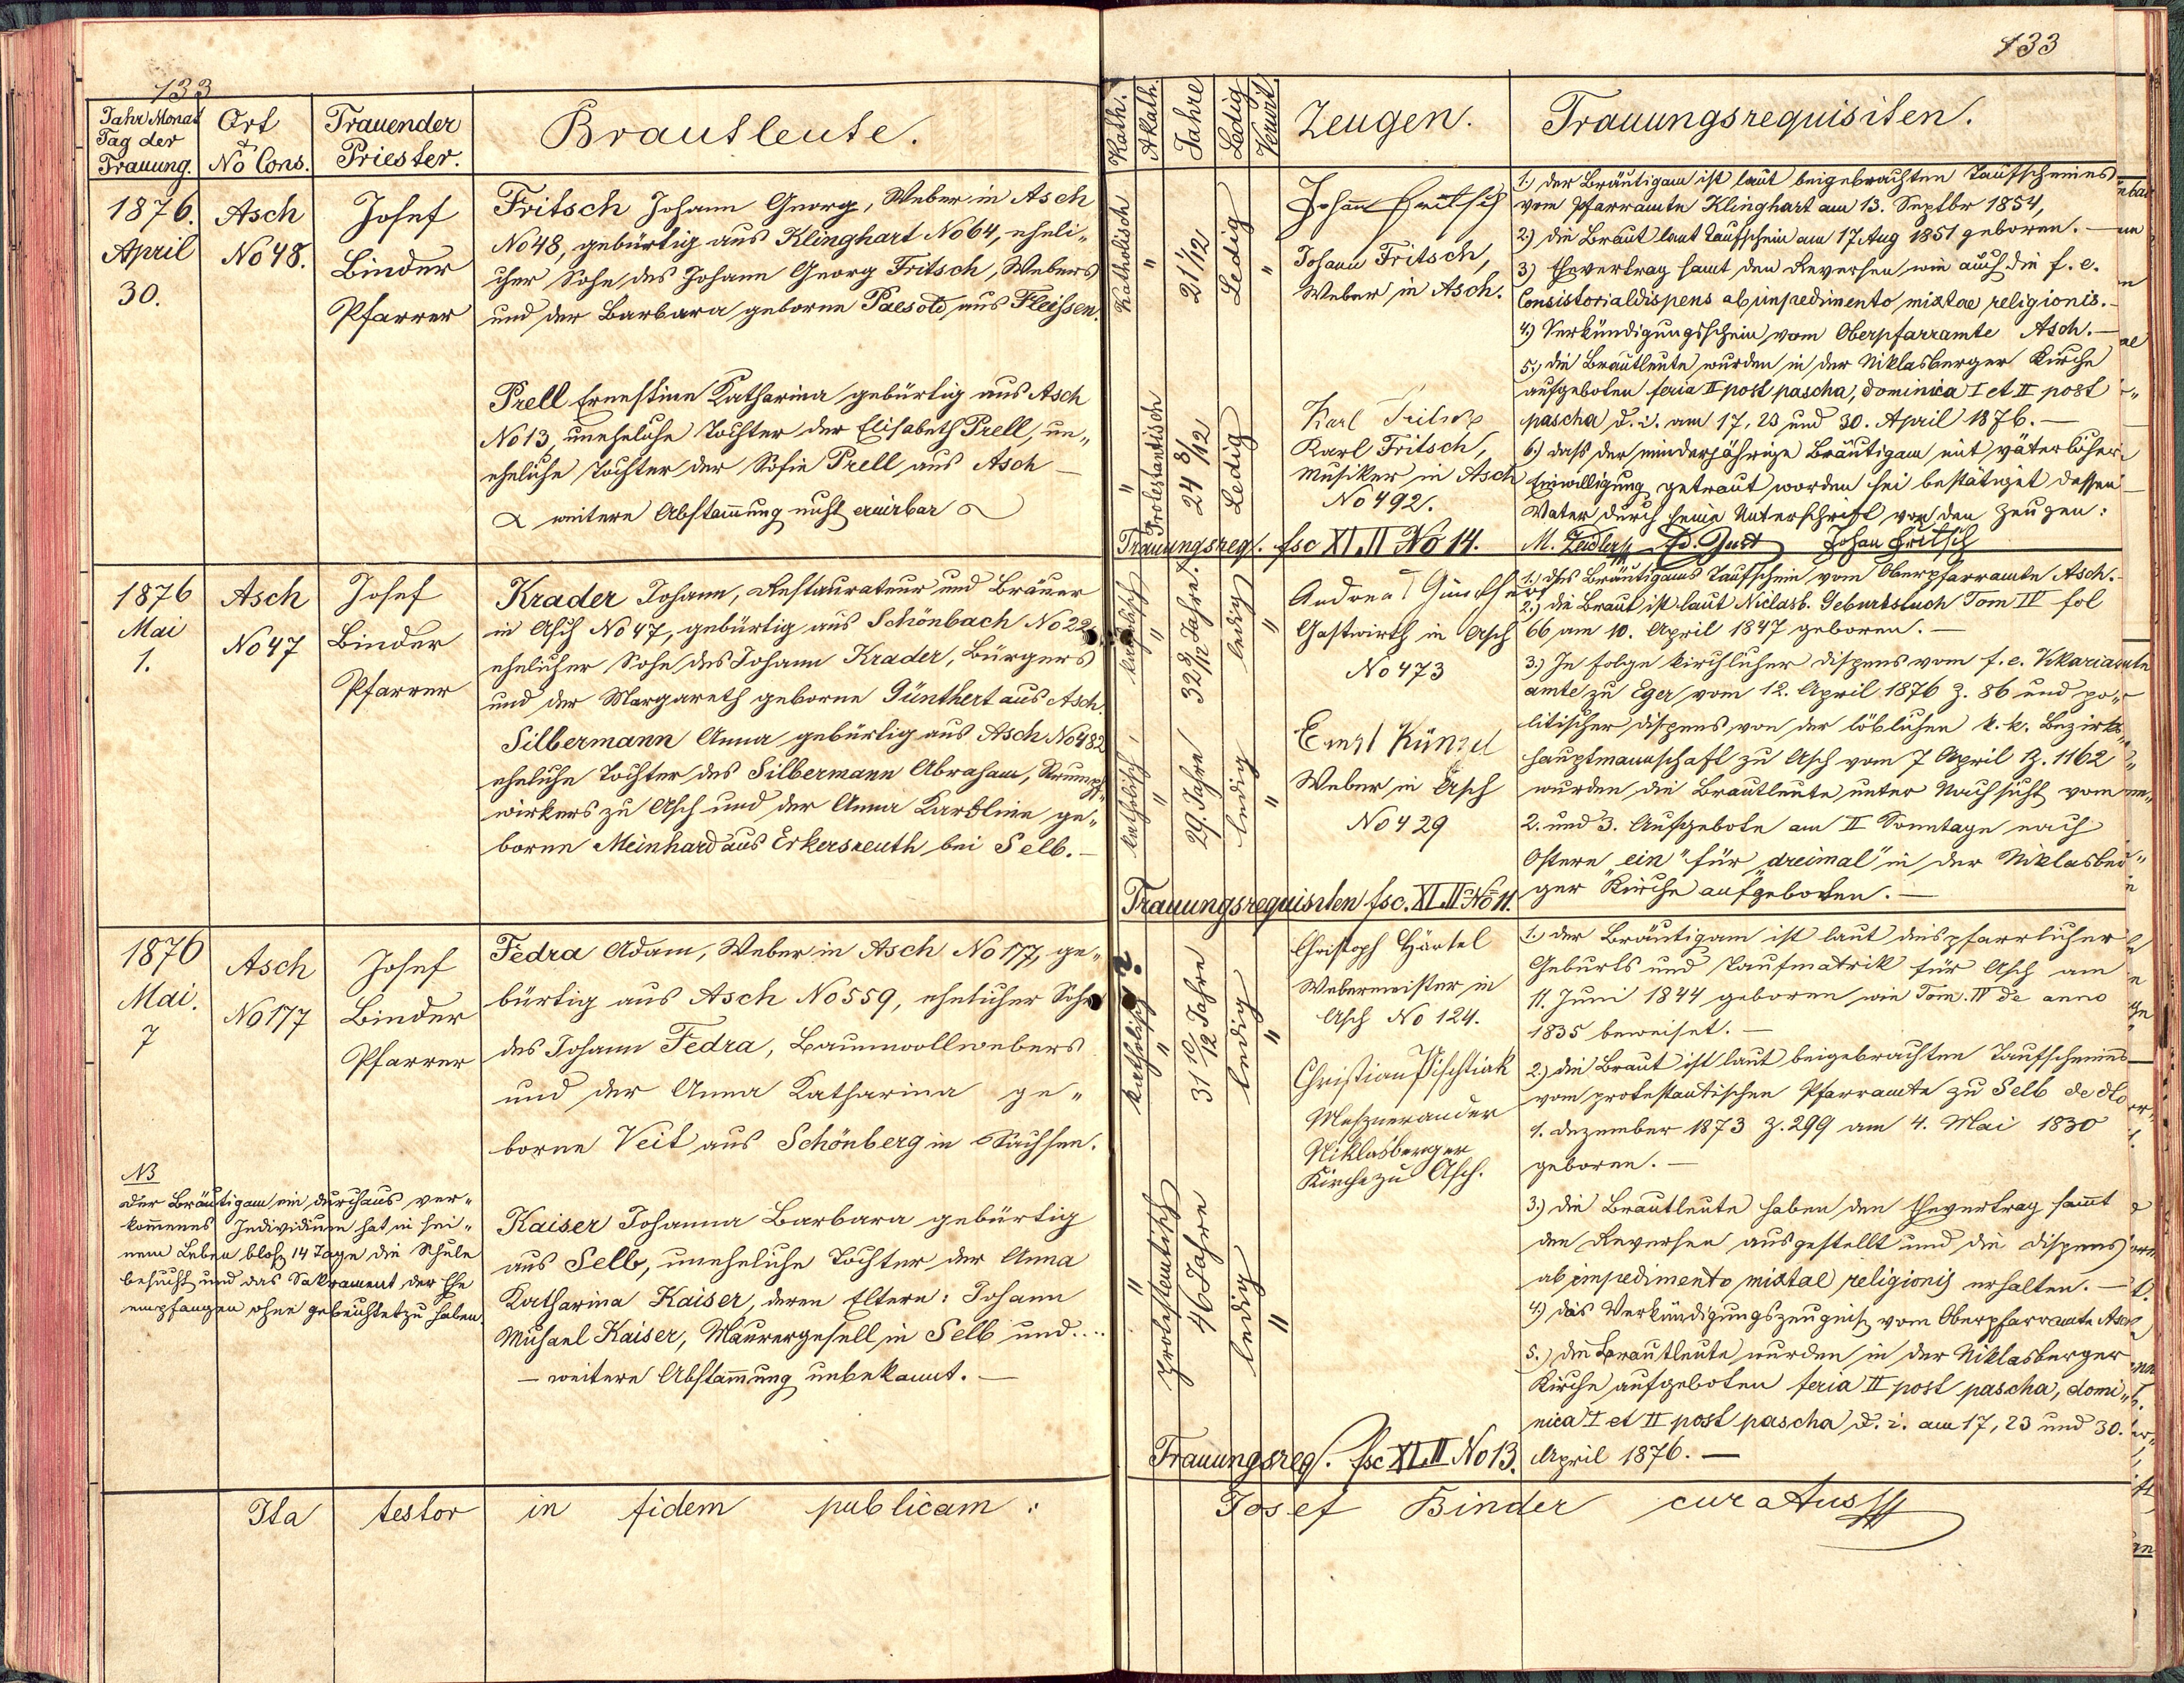 133
133
Jahr Monat
Tag der
Trauung.
Ort
&
No Cons.
Trauender
Priester.
Brautleute.
Kath.
Akath.
Jahre
Ledig
Verwit.
Zeugen.
Trauungsrequisiten.
1876.
April
30.
Asch
No 48.
Josef
Binder
Pfarrer
Fritsch Johann Georg, Weber in Asch
No 48, gebürtig aus Klinghart No 64, eheli„
cher Sohn des Johann Georg Fritsch, Webers
und der Barbara geborne Paesold aus Fleissen.
Prell Ernestine Katharina gebürtig aus Asch
No 13, uneheliche Tochter der Elisabeth Prell, un„
eheliche Tochter der Sofie Prell aus Asch —
weitere Abstammung nicht eruirbar
Katholisch
"
21 1/12
Ledig
"
"
Protestantisch
24 8/12
Ledig
Johann Fritsch
Johann Fritsch,
Weber in Asch.
Karl Fritsch
Karl Fritsch,
Musiker in Asch
No 492.
Trauungsreq. fsc XI,II No 14.
1.) Der Bräutigam ist laut beigebrachten Taufscheines
vom Pfarramte Klinghart am 13. Septbr 1854,
2) die Braut laut Taufschein am 17 Aug 1851 geboren. —
3) Ehevertrag samt den Reversen wie auch die f. e.
Consistorialdispens ab impedimento mixtae religionis. —
4) Verkündigungsschein vom Oberpfarramte Asch. —
5.) die Brautleute wurden in der Niklasberger Kirche
aufgeboten feria II post pascha, dominica I et II post
pascha d. i. am 17, 23 und 30. April 1876. —
6.) dass der minderjährige Bräutigam mit väterlicher
Einwilligung getraut worden sei bestätiget dessen
Vater durch seine Unterschrift vor den Zeugen:
M. Zeidler Ed. Just Johan Fritsch
1876
Mai
1.
Asch
No 47
Josef
Binder
Pfarrer
Krader Johann, Restaurateur und Bräuer
in Asch No 47, gebürtig aus Schönbach No 22
ehelicher Sohn des Johann Krader, Bürgers
und der Margareth geborne Günthert aus Asch.
Silbermann Anna gebürtig aus Asch No 482
eheliche Tochter des Silbermann Abraham, Strumpf„
wirkers zu Asch und der Anna Karoline ge„
borne Meinhard aus Erkersreuth bei Selb. —
katholisch
"
32 8/12 Jahre.
ledig
"
katholisch
"
29. Jahre
ledig
"
Andreas Günthert
Gastwirth in Asch
No 473
Ernst Künzel
Weber in Asch
No 429
Trauungsrequisiten fsc. XI.II No 11.
1.) des Bräutigams Taufschein vom Oberpfarramte Asch. —
2.) die Braut ist laut Niclasb. Geburtsbuch Tom IV fol
66 am 10. April 1847 geboren. —
3.) In folge kirchlicher Dispens vom f. e. Vikariats
amte zu Eger vom 12. April 1876 Z. 86 und po„
litischer Dispens von der löblichen k. k. Bezirks„
hauptmannschaft zu Asch vom 7 April Z. 1162
wurden die Brautleute unter Nachsicht vom
2. und 3. Aufgebote am II Sonntage nach
Ostern ein" für „dreimal" in der Niklasber„
ger Kirche aufgeboten. —
1876
Mai.
7
Asch
No 177
Josef
Binder
Pfarrer
Fedra Adam, Weber in Asch No 177, ge„
bürtig aus Asch No 559, ehelicher Sohn
des Johann Fedra, Baumwollwebers
und der Anna Katharina ge„
borne Veit aus Schönberg in Sachsen.
NB
der Bräutigam ein durchaus ver„
kommenes Individium hat in sei„
nem Leben blos 14 Tage die Schule
besucht und das Sakrament der Ehe
empfangen ohne gebeichtet zu haben.
Kaiser Johanna Barbara gebürtig
aus Selb, uneheliche Tochter der Anna
Katharina Kaiser, deren Eltern: Johann
Michael Kaiser, Maurergesell in Selb und....
— weitere Abstammung unbekannt. —
katholisch ?
"
31 10/12 Jahre
ledig
"
"
protestantisch
46 Jahre
ledig
"
Christoph Härtel
Webermeister in
Asch No 124.
Christian Pischtiak
Meszner an der
Niklasberger
Kirche zu Asch.
Trauungsreq. fsc XI.II No 13.
1.) der Bräutigam ist laut dies pfarrlicher
Geburts und Taufmatrik für Asch am
11. Juni 1844 geboren wie Tom. IV de anno
1835 beweiset. —
2.) die Braut ist laut beigebrachten Taufscheines
vom protestantischen Pfarramte zu Selb de dto
1. Dezember 1873 Z. 299 am 4. Mai 1830
geboren. —
3.) die Brautleute haben den Ehevertrag sammt
den Reversen ausgestellt und die Dispens
ab impedimento mixtae religionis erhalten. —
4) das Verkündigungszeugniss vom Oberpfarramte Asch
5.) die Brautleute wurden in der Niklasberger
Kirche aufgeboten feria II post pascha, domi„
nica I et II post pascha d. i. am 17, 23 und 30.
April 1876. —
Ita testor in fidem publicam:
Josef Binder curatus